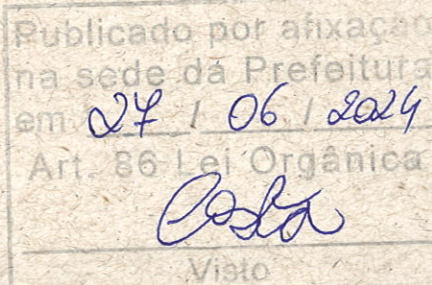 Publicado por afixação
na sede da Prefeitura
em 27 / 06 / 2024
Art. 86 Lei Orgânica
Costa
Visto